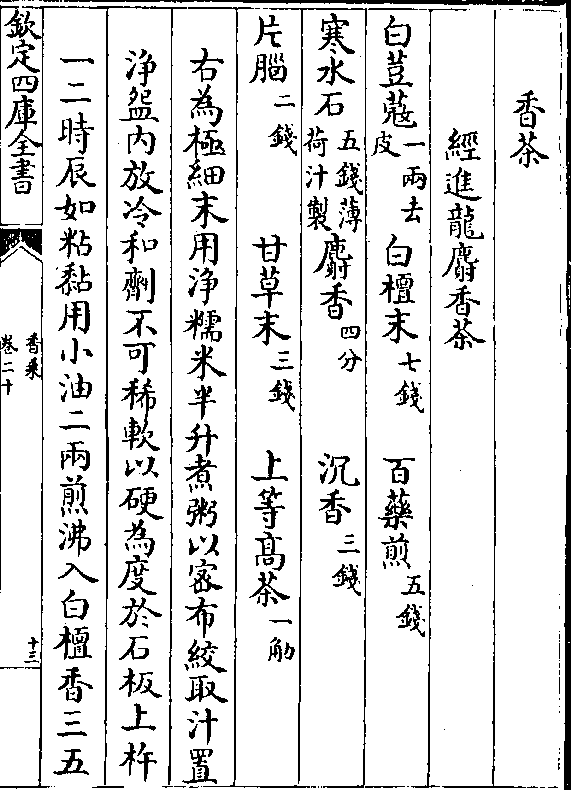 香茶
經進龍麝香茶
白荳蔲一兩去皮 白檀末七錢 百藥煎五錢
寒水石五錢薄荷汁製 麝香四分 沉香三錢
片腦二錢 甘草末三錢 上等髙茶一觔
右為極細末用淨糯米半升煮粥以宻布絞取汁置
淨盌内放冷和劑不可稀軟以硬為度於石板上杵
一二時辰如粘黏用小油二兩煎沸入白檀香三五
欽定四庫全書
香乗
卷二十
十三